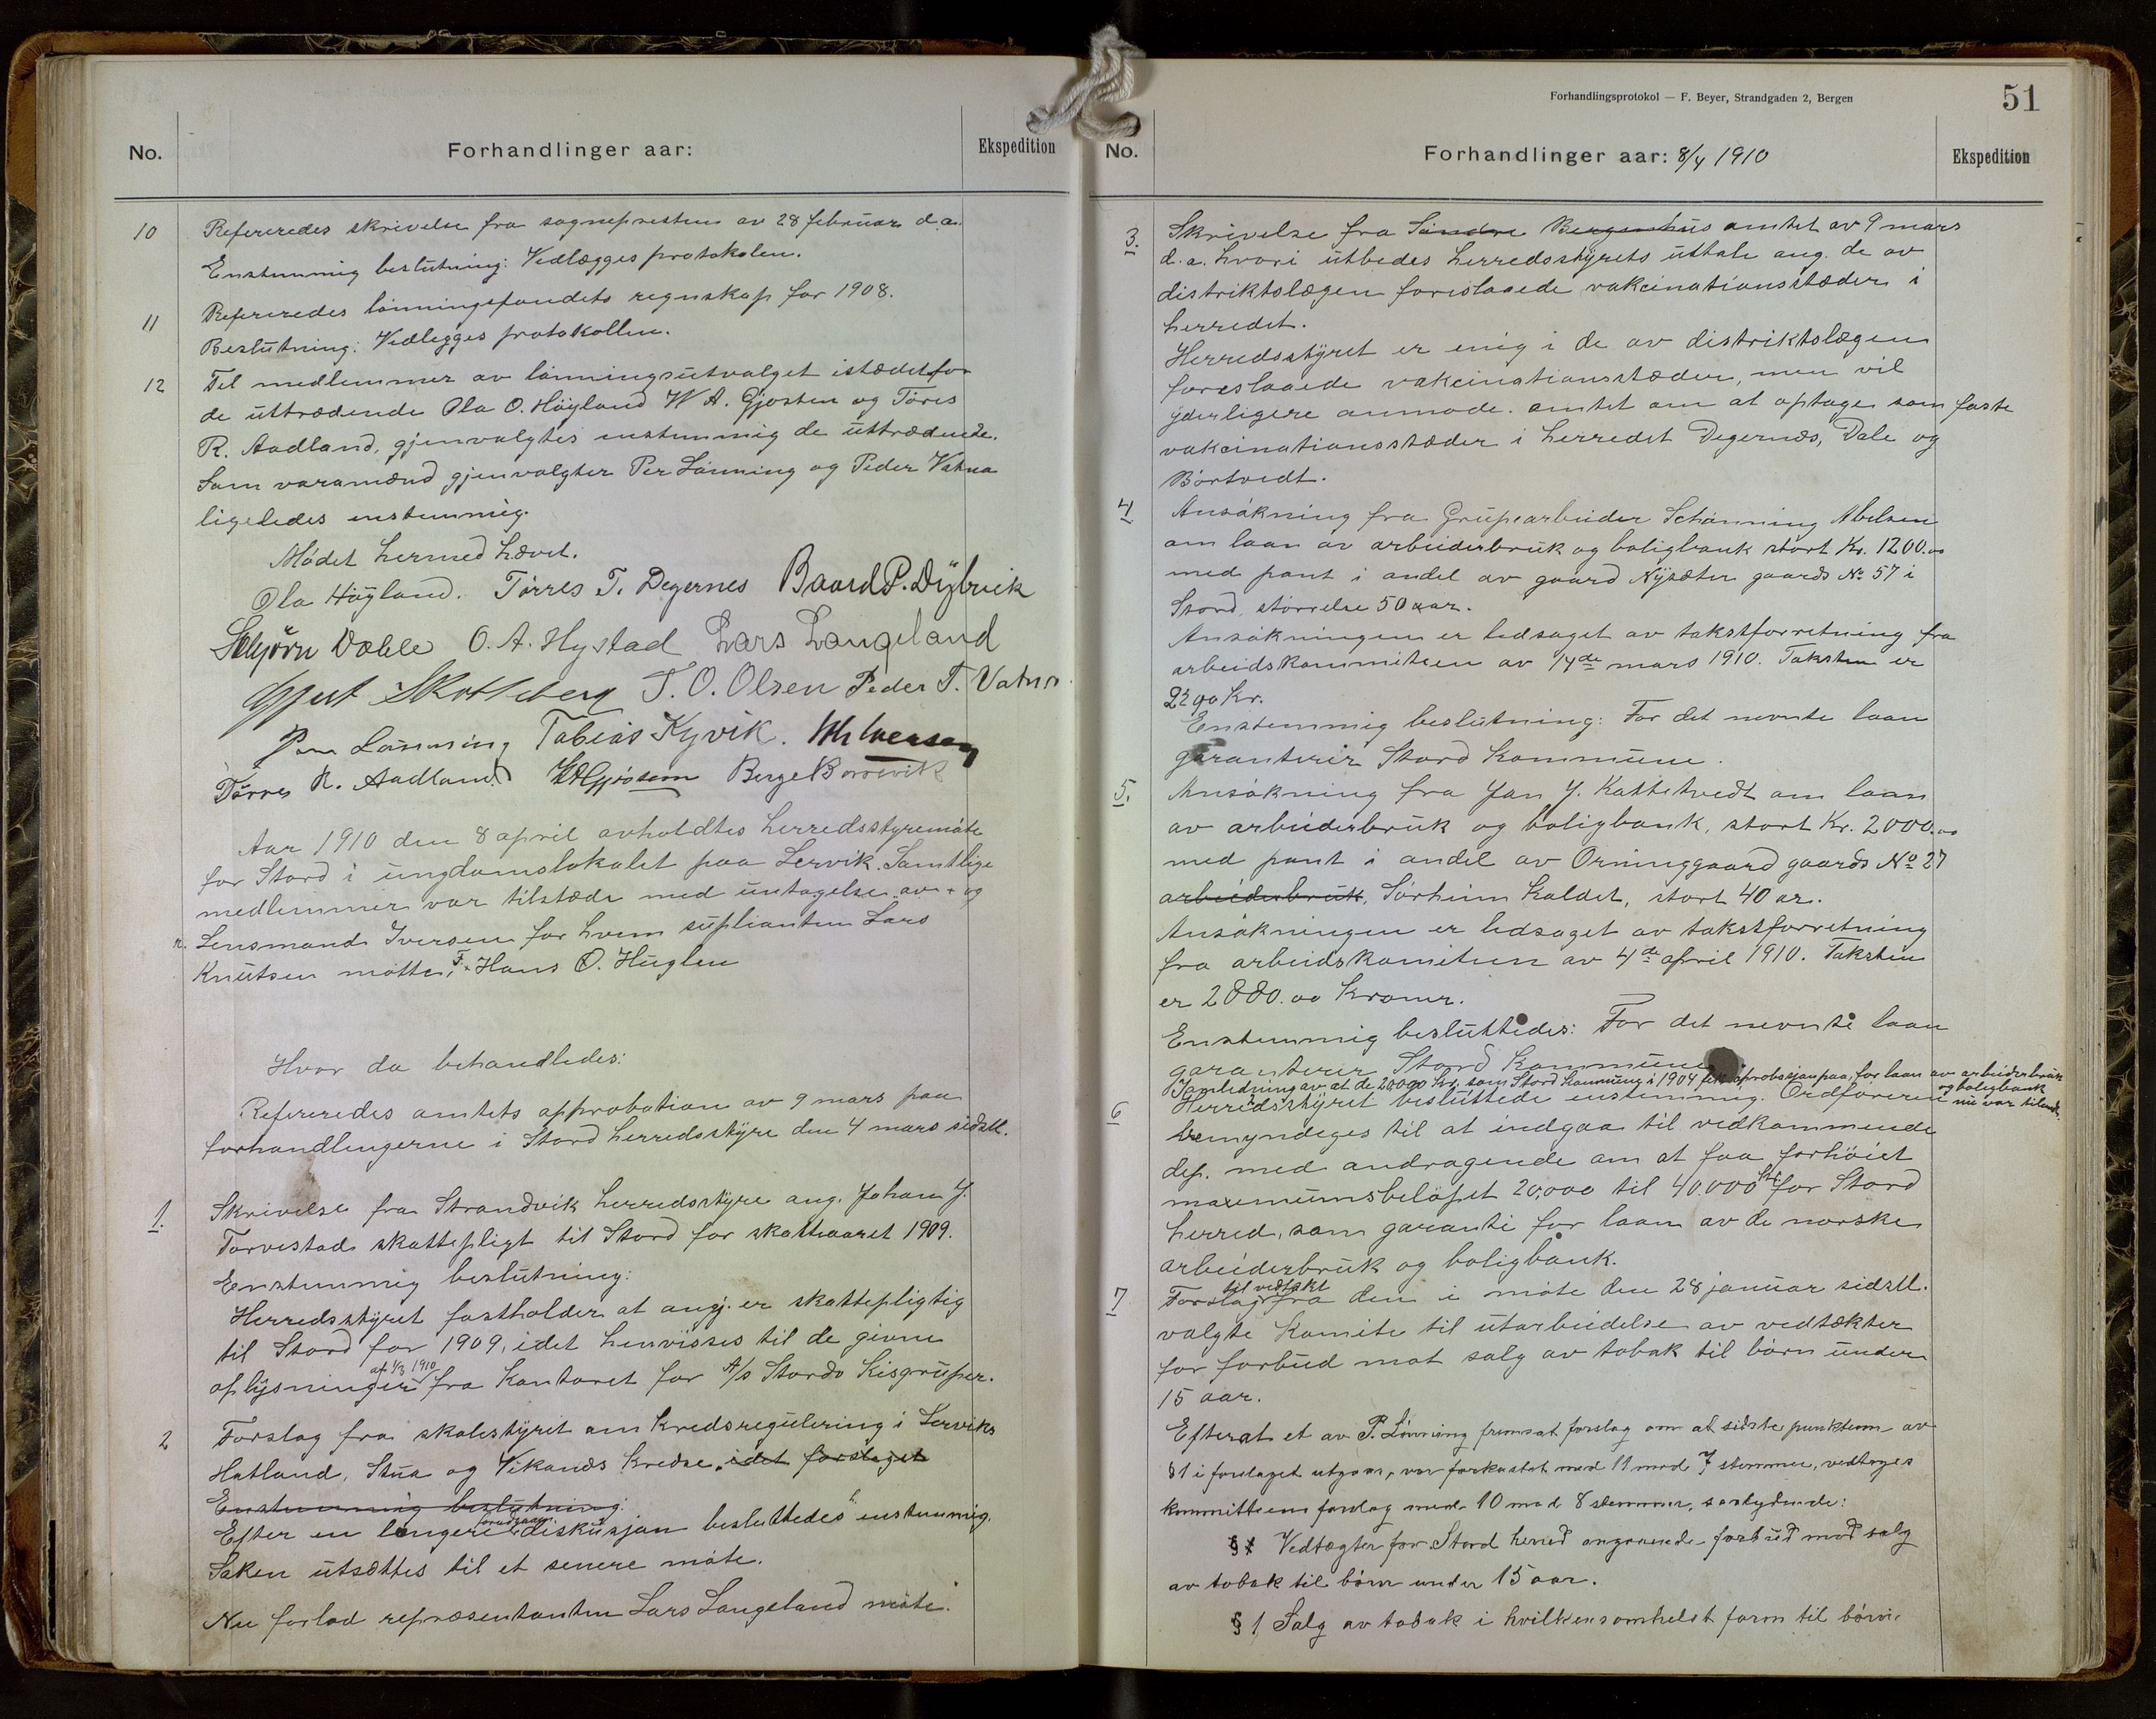 No.
Forhandlinger aar:
Ekspedition
10 Refereredes skrivelse fra sognepresten av 28 februar d.a.
Enstemmig beslutning: Vedlægges protokolen.
11 Refereredes lønningsfondets regnskap for 1908.
Beslutning: Vedlegges protokollen.
12 Til medlemmer av lønningsutvalget istædetfor
de uttrædende Ola O. Høyland W A. Gjøsten og Tøres
R. Aadland, gjenvalgtes enstemmig de uttrædende.
Som varamænd gjenvalgter Per Lønning og Peder Vatna
ligeledes enstemmig.
Mødet hermed hævet.
Ola Høyland. Tørres T. Degernes Baard P. Dybvik
Dahle O. A. Hystad Lars Langeland
Skotteberg T. O. Olsen Peder T. Vatna
Lønning Tobias Kyvik. Iversen
Tørres R. Aadland. Berge Borrevik
Aar 1910 den 8 april avholdtes herredsstyremøte
for Stord i ungdomslokalet paa Lervik. Samtlige
medlemmer var tilstæde med untagelse av + og
n. Lensmand Iversen for hvem suplianten Lars
Knutsen møtte, F + Hans O. Huglen
Hvor da behandledes:
Refereredes amtets approbation av 9 mars paa
forhandlingerne i Stord herredsstyre den 4 mars sidstl.
1. Skrivelse fra Strandvik herredsstyre ang. Johan J.
Tørvestads skattepligt til Stord for skatteaaret 1909.
Eenstemmig beslutning:
Herredsstyret fastholder at angj. er skattepligtig
til Stord for 1909, idet henvisses til de givne
af 1/3 1910
oplysninger fra Kontoret for A/s Stordø Kisgruper.
2 Forslag fra skolestyret om kredsregulering i Lerviks
Hatland, Stua og Vikanæs kredse, idet forslaget
Enstemmig beslutning:
forudgaaen.
Efter en længere diskusjon besluttedes enstemmig.
Saken utsættes til et senere møte.
Nu forlod repræsentanten Lars Langeland møte.
Forhandlingsprotokol — F. Beyer, Strandgaden 2, Bergen
51
No.
Forhandlinger aar: 8/4 1910
Ekspedition
3. Skrivelse fra Søndre Bergenhus amtet av 9 mars
d.a. hvori utbedes herredsstyrets uttale ang. de av
distriktslægen foreslaaede vakcinationsstæder i
herredet.
Herredsstyret er enig i de av distriktslægen
foreslaaede vakcinationsstæder, men vil
yderligere anmode amtet om at optage som faste
vakcinationsstæder i herredet Degernæs, Dale og
Børtvedt.
4 Ansøkning fra Grupearbeider Schønning Abelsen
om laan av arbeiderbruk og boligbank stort Kr. 1200.00
med pant i andel av gaard Nysæter gaards No 57 i
Stord, størrelse 50 ar.
Ansøkningen er ledsaget av takstforretning fra
arbeidskommiteen av 14de mars 1910. Taksten er
2200 kr.
Eenstemmig beslutning: For det nevnte laan
garanterer Stord kommune.
5. Ansøkning fra Jan J. Kattetvedt om laan
av arbeiderbruk og boligbank, stort Kr. 2000.00
med pant i andel av Orninggaard gaards No 27
arbeiderbruk, Sørheim kaldet, stort 40 ar.
Ansøkningen er ledsaget av takstforretning
fra arbeidskomiteen av 4de april 1910. Taksten
er 2880.00 kroner.
Enstemmig besluttedes: For det nevnte laan
garanterer Stord kommune.
I anledning av at de 20000 kr, som Stord kommune i 1904 fik aprobasjon paa, for laan av arbeiderbruk
og boligbank
nu var tilende.
6 Herredsstyret besluttede enstemmig. Ordføreren
bemyndiges til at indgaa til vedkommende
dep. med andragende om at faa forhøiet
maxemumsbeløpet 20,000 til 40.000 kr. for Stord
herred, som garanti for laan av de norske
arbeiderbruk og boligbank.
til vedtækt
7 Forslag fra den i møte den 28 januar sidstl.
valgte komite til utarbeidelse av vedtækter
for forbud mot salg av tobak til børn under
15 aar.
Efterat et av P. Lønning fremsat forslag om at sidste punktum av
§1 i forslaget utgaar, var forkastet med 11 mod 7 stemmer, vedtoges
kommitteens forslag med 10 mod 8 stemmer, saalydende:
§1 Vedtægter for Stord herred angaaende forbud mod salg
av tobak til børn under 15 aar.
§ 1 Salg av tobak i hvilkensomhelst form til børn